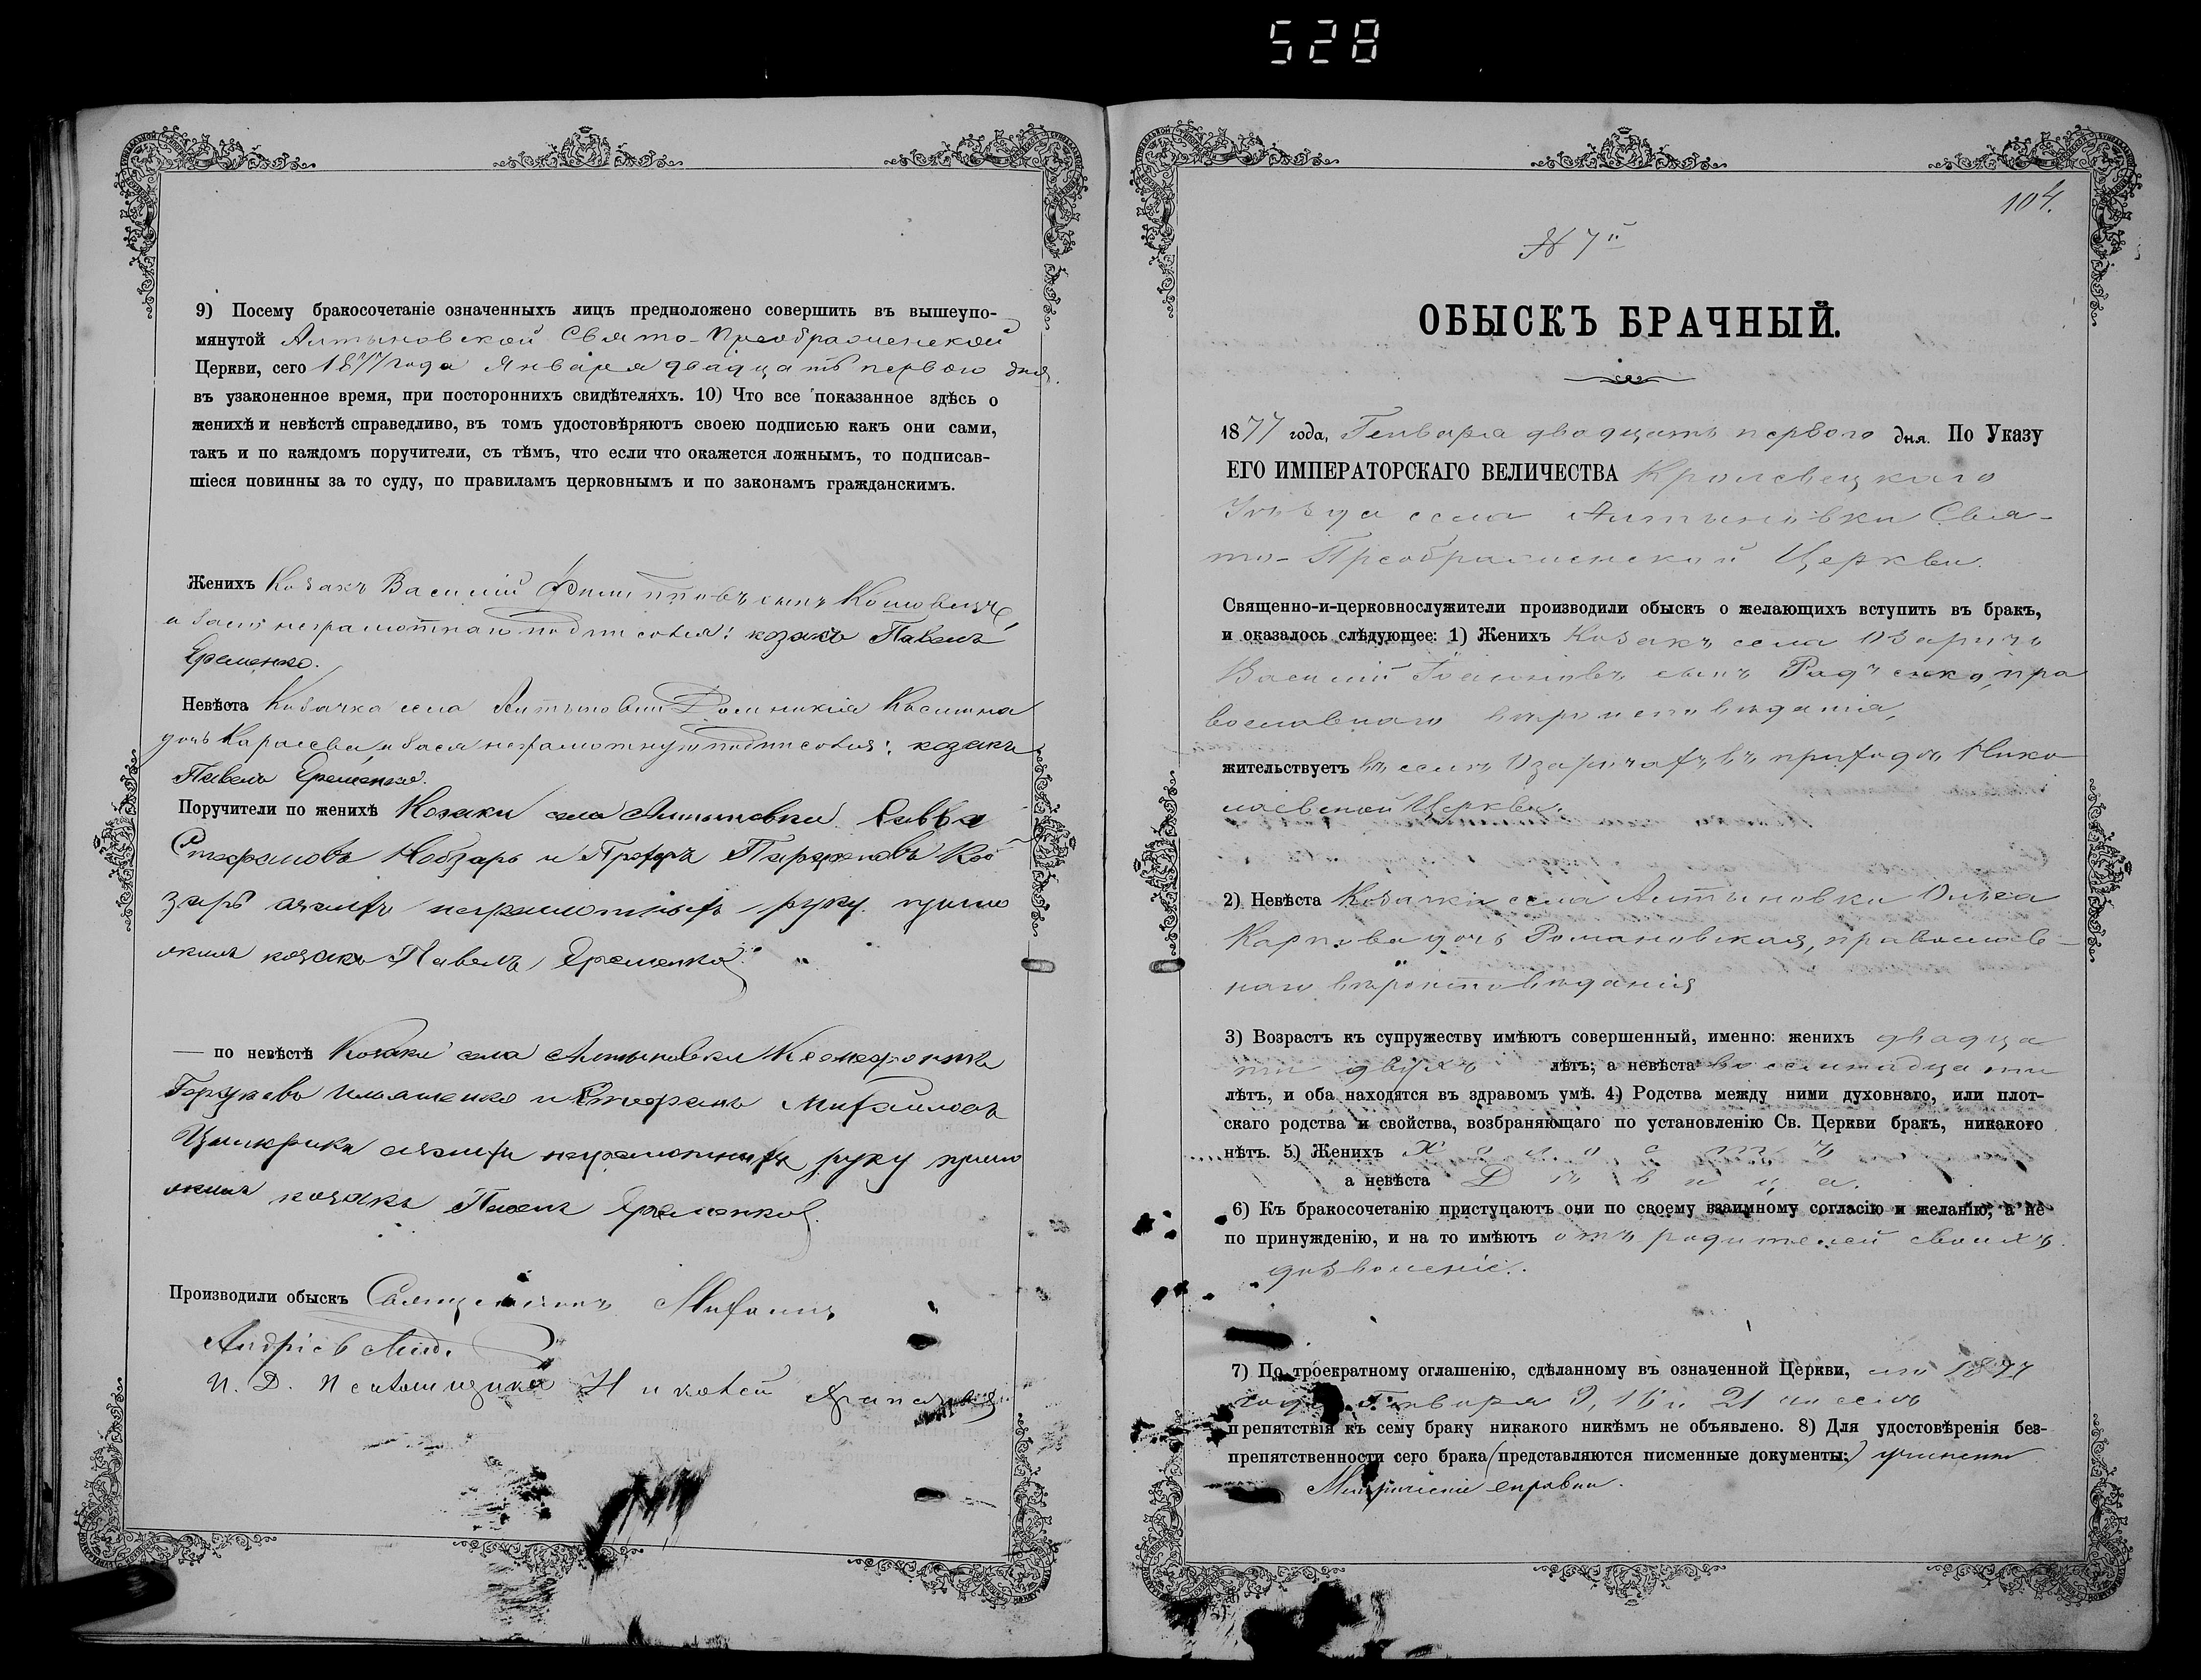 528
9) Посему бракосочетаніе означенныхъ лицъ предположено совершить въ вышеупо-
мянутой Алтыновской Свято-Преображенской
Церкви, сего 1877 года Января двадцать первого дня
въ узаконенное время, при постороннихъ свидѣтеляхъ. 10) Что все показанное здѣсь о
женихѣ и невѣстѣ справедливо, въ томъ удостовѣряютъ своею подписью какъ они сами,
такъ и по каждомъ поручители, съ тѣмъ, что если что окажется ложнымъ, то подписав-
шіеся повинны за то суду, по правиламъ церковнымъ и по законамъ гражданскимъ.
Женихъ Козакъ Василій Филипповъ сынъ
неграмотнаго подписался: козакъ Павелъ
Еременко.
Невѣста Козачка села Алтыновки Домникія
дочь неграмотную подписался: козакъ
Павелъ Еременко.
Поручители по женихѣ Козаки села Алтыновки Савва
Стефановъ Кобзарь и Прохоръ Парфеновъ Коб-
зарь а за нихъ неграмотныхъ руку прило
жилъ козакъ Павелъ Еременко
— по невѣстѣ Козаки села Алтыновки
Ильяшенко и Стефанъ Михайловъ
а за нихъ неграмотныхъ руку прило
жилъ козакъ Павелъ Еременко.
Производили обыскъ Священникъ Михаилъ
И. Д. Псаломщика
104.
№ 7й
ОБЫСКЪ БРАЧНЫЙ.
1877 года, Генваря двадцать первого дня. По Указу
ЕГО ИМПЕРАТОРСКАГО ВЕЛИЧЕСТВА Кролевецкаго
Уѣзда села Алтыновки Свя-
то-Преображенской Церкви.
Священно-и-церковнослужители производили обыскъ о желающихъ вступить въ бракъ,
и оказалось слѣдующее: 1) Женихъ Козакъ села Озаричъ
Василій сынъ Радченко, пра
вославнаго вѣроисповѣданія,
жительствуетъ въ селѣ Озаричахъ въ приходѣ Нико
лаевской Церкви.
2) Невѣста Козачка села Алтыновки Ольга
Карпова дочь Романовская, православ-
наго вѣроисповѣданія
3) Возрастъ къ супружеству имѣютъ совершенный, именно: женихъ двадца
ти двухъ лѣтъ; а невѣста восемнадцати
лѣтъ, и оба находятся въ здравомъ умѣ. 4) Родства между ними духовнаго, или плот-
скаго родства и свойства, возбраняющаго по установленію Св. Церкви бракъ, никакого
нѣтъ. 5) Женихъ Холостъ
а невѣста Дѣвица.
6) Къ бракосочетанію приступаютъ они по своему взаимному согласію и желанію, а не
по принужденію, и на то имѣютъ отъ родителей своихъ
дозволеніе.
7) По троекратному оглашенію, сдѣланному въ означенной Церкви, 1877
года Генваря 9, 16 и 21 числъ
препятствія къ сему браку никакого никѣмъ не объявлено. 8) Для удостовѣренія без-
препятственности сего брака (представляются писменные документы:) учинены
Метрическіе справки.